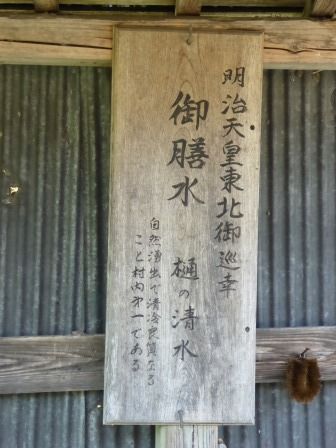 明治天皇東北御巡幸
御膳水 樋の清水
自然湧出で清冷良質なる
こと村内第一である